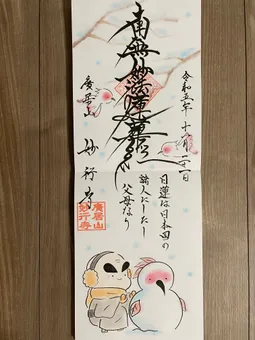 令和五年十一月二十一日
南無妙法蓮華経
日蓮は日本国の
諸人にしたし
父母なり
廣居山
妙行寺
廣居山
妙行寺